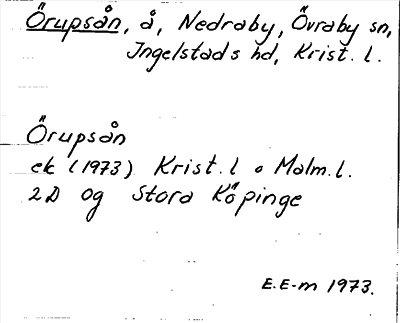 Örupsån, å, Nedraby, Övraby sn,
Ingelstads hd, Krist. l.
Örupsån
ek (1973) Krist. l o Malm. l.
2D og Stora Köpinge
E.E-m 1973.